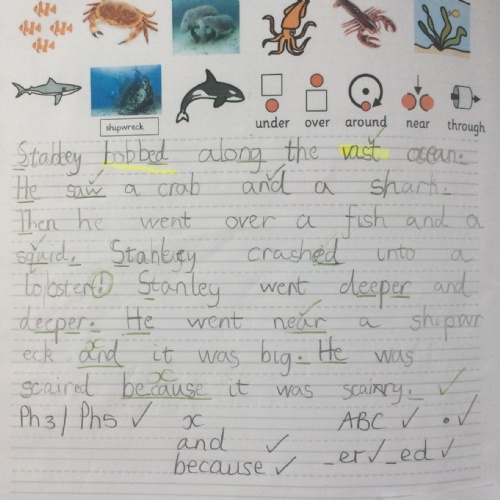 shipwreck
under over around near through
Stabley bobbed along the vast ocean.
He saw a crab and a shark.
Then he went over a fish and a
squid. Stanley crashed into a
lobster! Stanley went deeper and
deeper. He went near a shipwr
eck and it was big. He was
scaired because it was scairy.
Ph3/ Ph5 ✓ ABC ✓ . ✓
and ✓ _er ✓ _ed ✓
because ✓